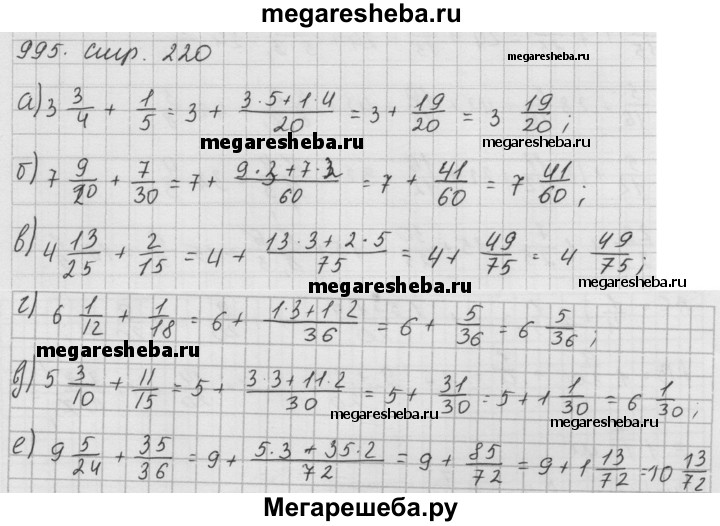 megaresheba.ru
995. стр. 220
megaresheba.ru
а) 3 3/4 + 1/5 = 3 + (3·5+1·4)/20 = 3 + 19/20 = 3 19/20;
megaresheba.ru megaresheba.ru
б) 7 9/20 + 7/30 = 7 + (9·3+7·2)/60 = 7 + 41/60 = 7 41/60;
в) 4 13/25 + 2/15 = 4 + (13·3+2·5)/75 = 4 + 49/75 = 4 49/75;
megaresheba.ru
г) 6 1/12 + 1/18 = 6 + (1·3+1·2)/36 = 6 + 5/36 = 6 5/36;
megaresheba.ru
д) 5 3/10 + 11/15 = 5 + (3·3+11·2)/30 = 5 + 31/30 = 5 + 1 1/30 = 6 1/30;
megaresheba.ru
е) 9 5/24 + 35/36 = 9 + (5·3+35·2)/72 = 9 + 85/72 = 9 + 1 13/72 = 10 13/72
Мегарешеба.ру